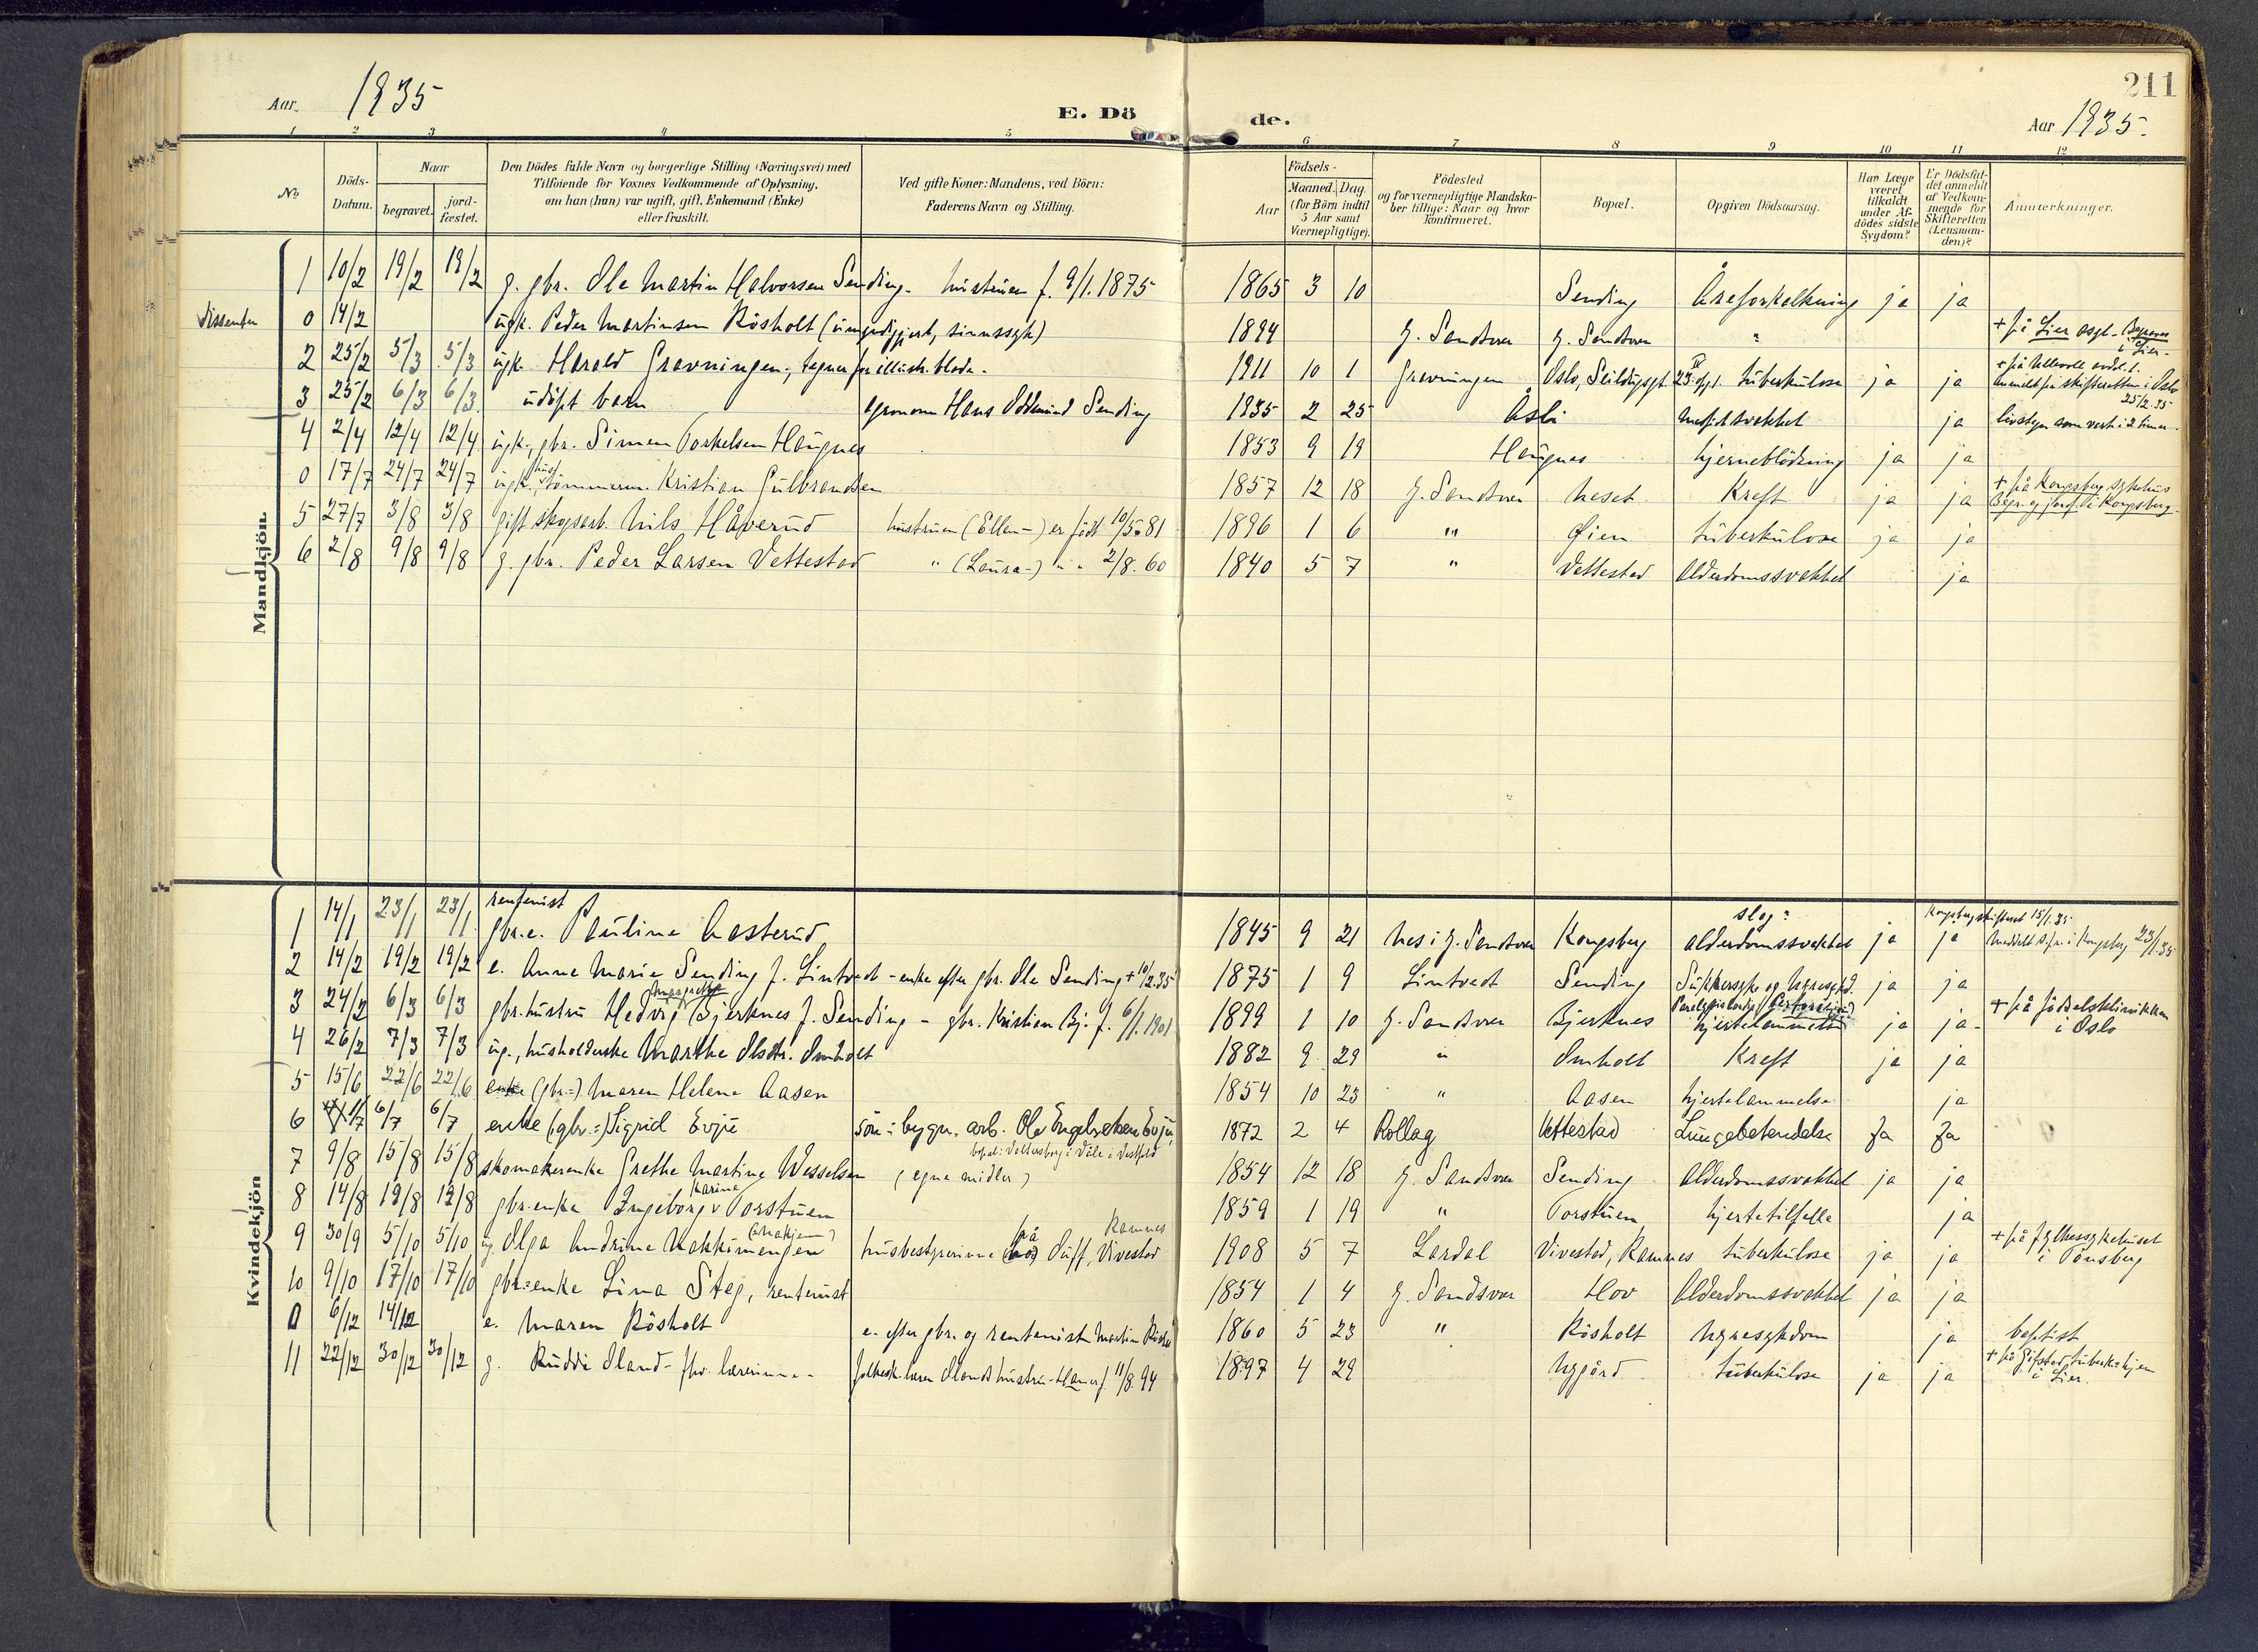 211
Aar 1935
E. Döde.
Aar 1935.
1 2 3 4 5 6 7 8 9 10 11 12
No
Döds-Datum.
Naar
begravet.
jord-fæstet.
Den Dödes fulde Navn og borgerlige Stilling (Næringsvei) med
Tilföiende for Voxnes Vedkommende af Oplysning,
om han (hun) var ugift, gift, Enkemand (Enke)
eller fraskilt.
Ved gifte Koner: Mandens, ved Börn:
Faderens Navn og Stilling.
Födsels-
Aar
Maaned. Dag.
(for Börn indtil
5 Aar samt
Værnepligtige).
Födested
og for værnepligtige Mandska-
ber tillige: Naar og hvor
konfirmeret.
Bopæl.
Opgiven Dödsaarsag.
Har Læge
været
tilkaldt
under Af-
dödes sidste
Sygdom?
Er Dödsfal-
det anmeldt
af Vedkom-
mende for
Skifteretten
(Lensman-
den)?
Anmærkninger.
Mandkjön.
1 10/2 19/2 19/2 g. gbr. Ole Martin Halvorsen Sending. hustruen f. 9/1. 1875 1865 3 10 Sending Åreforkalkning ja ja
Dissenter 0 14/2 ugk. Peder Martinsen Rösholt (umyndiggjort, sinnssyk) 1894 Y. Sandsver Y. Sandsver " + på Lier asyl. Begraves i Lier.
2 25/2 5/3 5/3 ugk. Harald Gravningen, tegner for illustr. blade. 1911 10 1 Gravningen Oslo, 23 IV opg. tuberkulose ja ja + på Ullevoll avdel. 1. anmeldt på skifteretten i Oslo 25/2.35
3 25/2 6/3 6/3 udöpt barn agronom Hans Oddmund Sending 1935 2 25 Åsli medfödt svakhet ja livstegn som varte i 2 timer.
4 2/4 12/4 12/4 ugk., gbr. Simen Torkelsen Haugnes 1853 9 19 Haugnes hjerneblödning ja ja
0 17/7 24/7 24/7 ugk., husf. tömmerm. Kristian Gulbrandsen 1857 12 18 Y. Sandsver Neset Kreft ja ja + på Kongsberg sykehus Begr. og jordf. i Kongsberg.
5 27/7 3/8 3/8 gift skogsarb. Nils Håverud hustruen (Ellen-) er födt 10/5.81 1896 1 6 " Øien tuberkulose ja ja
6 2/8 9/8 9/8 g. gbr. Peder Larsen Vettestad " (Laura-) " " 2/8. 60 1840 5 7 " Vettestad Alderdomssvakhet ja
Kvindekjön
1 14/1 23/1 23/1 rentenist gbr.e. Pauline Aasterud 1845 9 21 Nes i Y. Sandsver Kongsberg slag? alderdomssvakhet ja ja Kongsberg skifterett 15/1.35 Meddelt s.pr. i Kongsberg 23/1.35
2 14/2 19/2 19/2 e. Anne Marie Sending f. Lintvedt - enke efter gbr. Ole Sending + 10/2.35 1875 1 9 Lintvedt Sending Sukkersyke og nyresykd. ja ja
3 24/2 6/3 6/3 gbr. hustru Hedvig Margrethe Bjerknes f. Sending - gbr. Kristian Bj. f. 6/1.1901 1899 1 10 Y. Sandsver Bjerknes hjertelammelse ja ja + på Födselsklinikken i Oslo
4 26/2 7/3 7/3 ug., husholderske Marthe Olsdtr. Omholt 1882 9 29 " Omholt Kreft ja ja
5 15/6 22/6 22/6 enke (gbr.) Maren Helene Aasen 1854 10 23 " Aasen hjertelammelse ja
6 1/7 6/7 6/7 enke (gbr.) Sigrid Evju sön: bygn. arb. Ole Engebretsen Evju, 1872 2 4 Rollag Vettestad Lungebetendelse Ja Ja
7 9/8 15/8 15/8 skomakerenke Grethe Martine Wesselsen (egne midler) 1854 12 18 Y. Sandsver Sending Alderdomssvakhet ja ja
8 14/8 19/8 19/8 gbr.enke Ingeborg Karine Torstuen 1859 1 19 " Torstuen hjertetilfelle ja
9 30/9 5/10 5/10 ug. Olga Andrine Nakkimengen husbestyrerinne på Duff, Vivestad Ramnes 1908 5 7 Lardal Vivestad, Ramnes tuberkulose ja ja + på fylkessykehuset i Tönsberg
10 9/10 17/10 17/10 gbr.enke Lina Steg, rentenist 1854 1 4 Y. Sandsver Hov Alderdomssvakhet ja ja
0 6/12 14/12 e. Maren Rösholt e. efter gbr. og rentenist Martin Rösholt 1860 5 23 " Rösholt Nyresykdom ja baptist
11 22/12 30/12 30/12 g. Ruddi Oland - fhv. lærerinne - folkesk. lærer Olands hustru - Han er f. 11/8. 94 1897 4 29 Nygård tuberkulose ja ja + på Gifstad tuberk.hjem i Lier.